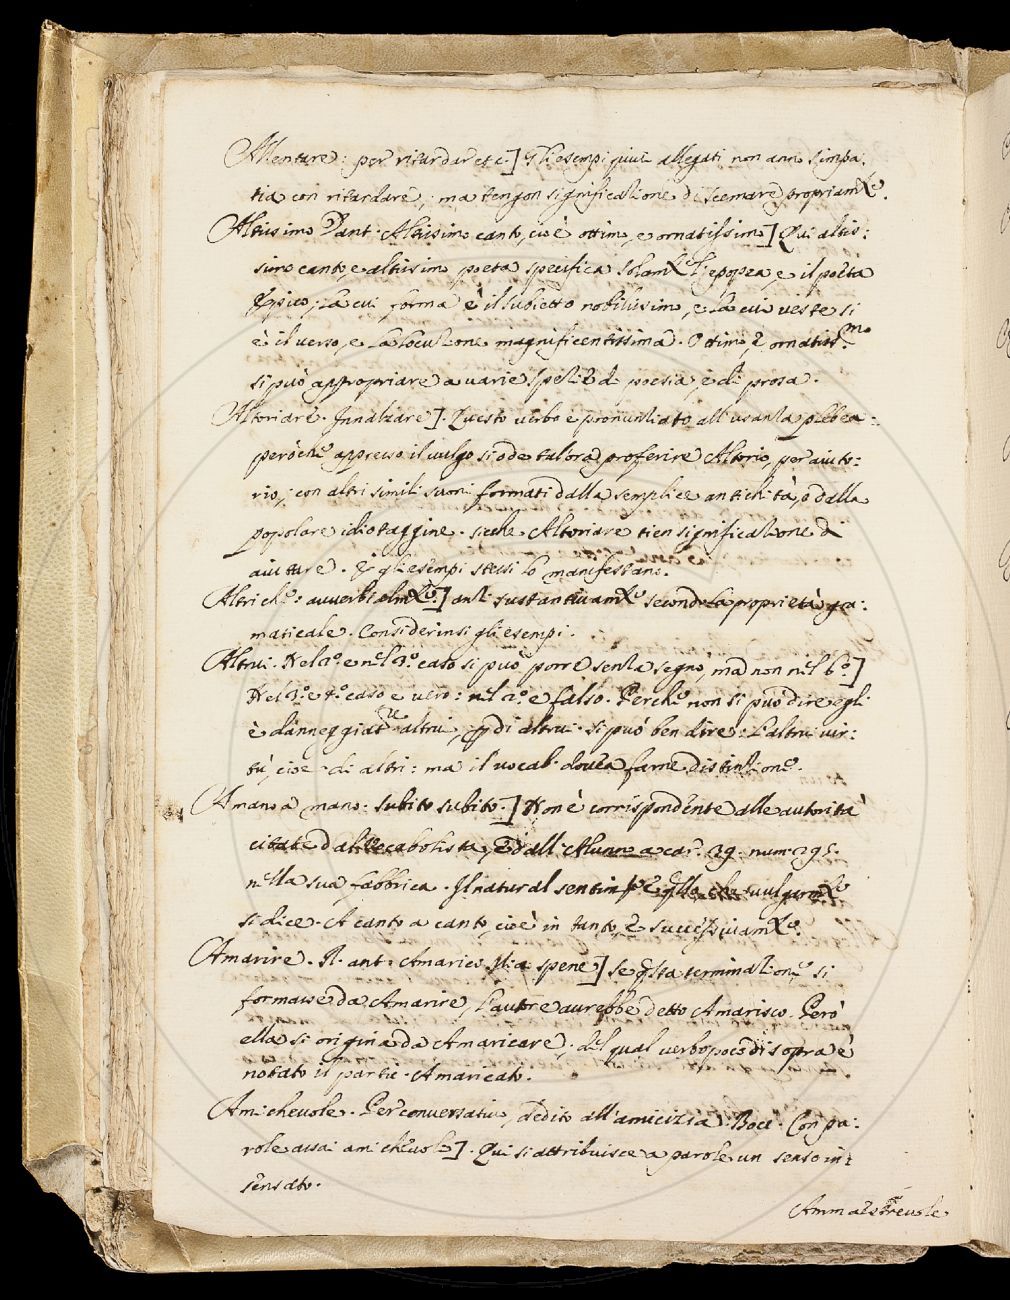 Allentare: per ritardar etc.] Gli esempi quivi allegati non ann simpa:
tia con ritardare, ma tengon significazione di scemare propriamte.
Altissimo Dant. Altissimo canto, cioè ottimo, e ornatissimo] Qui altis:
simo canto, e altissimo poeta specifica solamte l'epopea, e il poeta
Epico, la cui forma è il subietto nobilissimo, e la cui veste si
è il verso, e la locuzione magnificentissima. Ottimo, e ornatissmo
si può appropriare a varie spezie di poesia, e di prosa.
Altoriare. Innalzare]. Questo verbo è pronunziato all'usanza plebea:
però che appresso il vulgo si ode talora proferire Altorio, per aiuto:
rio, con altri simili suoni formati dalla semplice antichità, o dalla
popolare idiotaggine. sicche Altoriare tien significazione di
aiutare. E gli esempi stessi lo manifestano.
Altri che: avverbialmte.] anzi sustantivamte secondo la proprietà gra:
maticale. Considerinsi gli esempi.
Altrui. Nel 2º. e nel 3º. caso si può porre senza segno, ma non nel 6º.]
Nel 3º. e 4º. caso e vero: nel 2º. e falso. Perche non si può dire egli
è danneggiatre altrui, di altrui si può ben dire: L'altrui vir:
tù, cioe di altri: ma il vocab. dovea farne distinzione.
A mano a mano: subito subito.] Non è corrispondente alle autorità
citate dal Vocabolista, e dall'Alunno a car. 29. num. 295.
nella sua fabbrica. Il natural sentimto è qlla che vulgarmte
si dice. A canto a canto, cioè in tanto, e successivamte.
Amarire. R. ant. Amarico mia spene] Se qsta terminazione si
formasse da Amarire, l'autore aurebbe detto Amarisco. Però
ella si origina da Amaricare, del qual verbo poco di sopra è
notato il partic. Amaricato.
Amichevole. Per conversativo, dedito all'amicizia. Bocc. Con pa:
role assai amichevole]. Qui si attribuisce a parole un senso in:
sensato.
Ammaestrevole